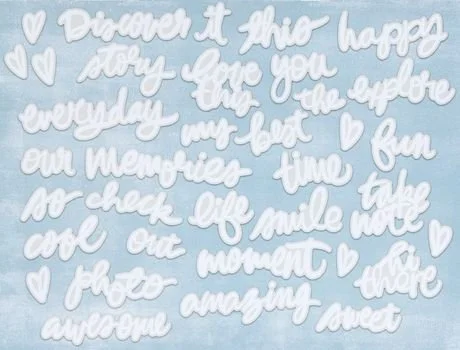 Discover it this happy
story love you
this the explore
everyday my best fun
our memories time
so check life smile take note
cool out moment hi there
photo amazing
awesome sweet